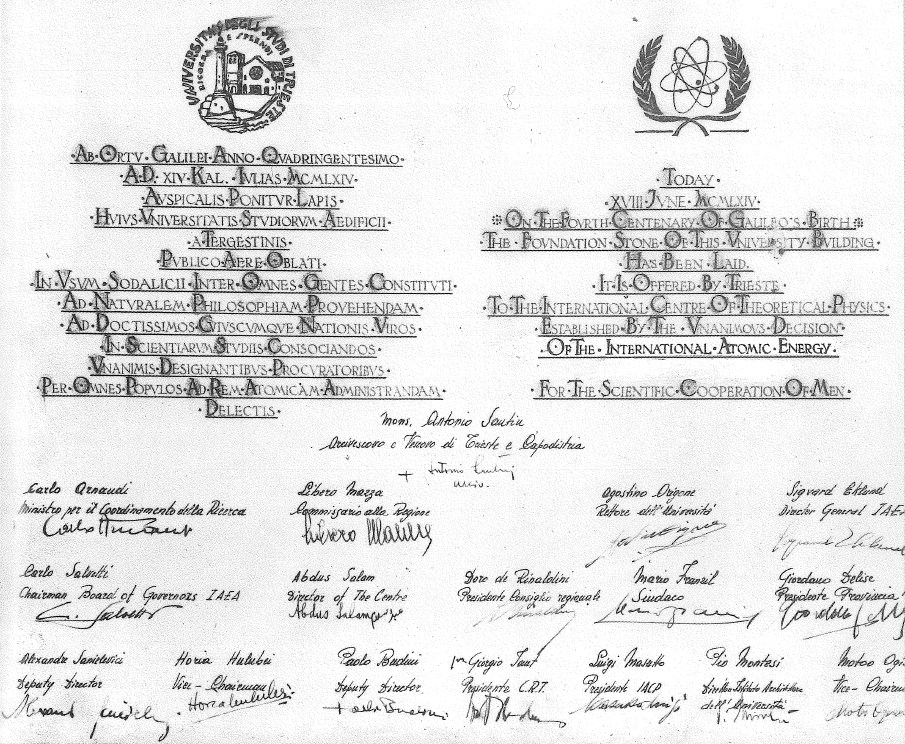 VNIVERSITAS DEGLI STVDI DI TRIESTE
RICORDA E SPLENDI
·AB·ORTV·GALILEI·ANNO·QVADRINGENTESIMO·
·A·D·XIV·KAL·IVLIAS·MCMLXIV·
·AVSPICALIS·PONITVR·LAPIS·
·HVIVS·VNIVERSITATIS·STVDIORVM·AEDIFICII·
·A·TERGESTINIS·
·PVBLICO·AERE·OBLATI·
·IN·VSVM·SODALICII·INTER·OMNES·GENTES·CONSTITVTI·
·AD·NATVRALEM·PHILOSOPHIAM·PROVEHENDAM·
·AD·DOCTISSIMOS·CVIVSCVMQVE·NATIONIS·VIROS·
·IN·SCIENTIARVM·STVDIIS·CONSOCIANDOS·
·VNANIMIS·DESIGNANTIBVS·PROCVRATORIBVS·
·PER·OMNES·POPVLOS·AD·REM·ATOMICAM·ADMINISTRANDAM·
·DELECTIS·
·TODAY·
·XVIII·JVNE·MCMLXIV·
·ON·THE·FOVRTH·CENTENARY·OF·GALILEO'S·BIRTH·
THE·FOVNDATION·STONE·OF·THIS·VNIVERSITY·BVILDING
·HAS·BEEN·LAID·
·IT·IS·OFFERED·BY·TRIESTE·
·TO·THE·INTERNATIONAL·CENTRE·OF·THEORETICAL·PHYSICS·
·ESTABLISHED·BY·THE·VNANIMOVS·DECISION·
·OF·THE·INTERNATIONAL·ATOMIC·ENERGY·
·FOR·THE·SCIENTIFIC·COOPERATION·OF·MEN·
Mons. Antonio Santin
Arcivescovo e Vescovo di Trieste e Capodistria
Carlo Arnaudi
Ministro per il Coordinamento della Ricerca
Libero Mazza
Commissario alla Regione
Libero Mazza
Agostino Origone
Rettore dell'Università
Sigvard Eklund
Director General IAEA
Carlo Salvetti
Chairman Board of Governors IAEA
C. Salvetti
Abdus Salam
Director of The Centre
Abdus Salam
Doro de Rinaldini
Presidente Consiglio regionale
Mario Franzil
Sindaco
Giordano Delise
Presidente Provincia
Alexandre Sanielevici
Deputy Director
Horia Hulubei
Vice-Chairman
Horia Hulubei
Paolo Budini
Deputy Director
Giorgio
Presidente C.R.T.
Luigi Masutto
Presidente IACP
Pio Montesi
Direttore Istituto Architettura
dell'Università
Motoo Ogi
Vice-Chairm